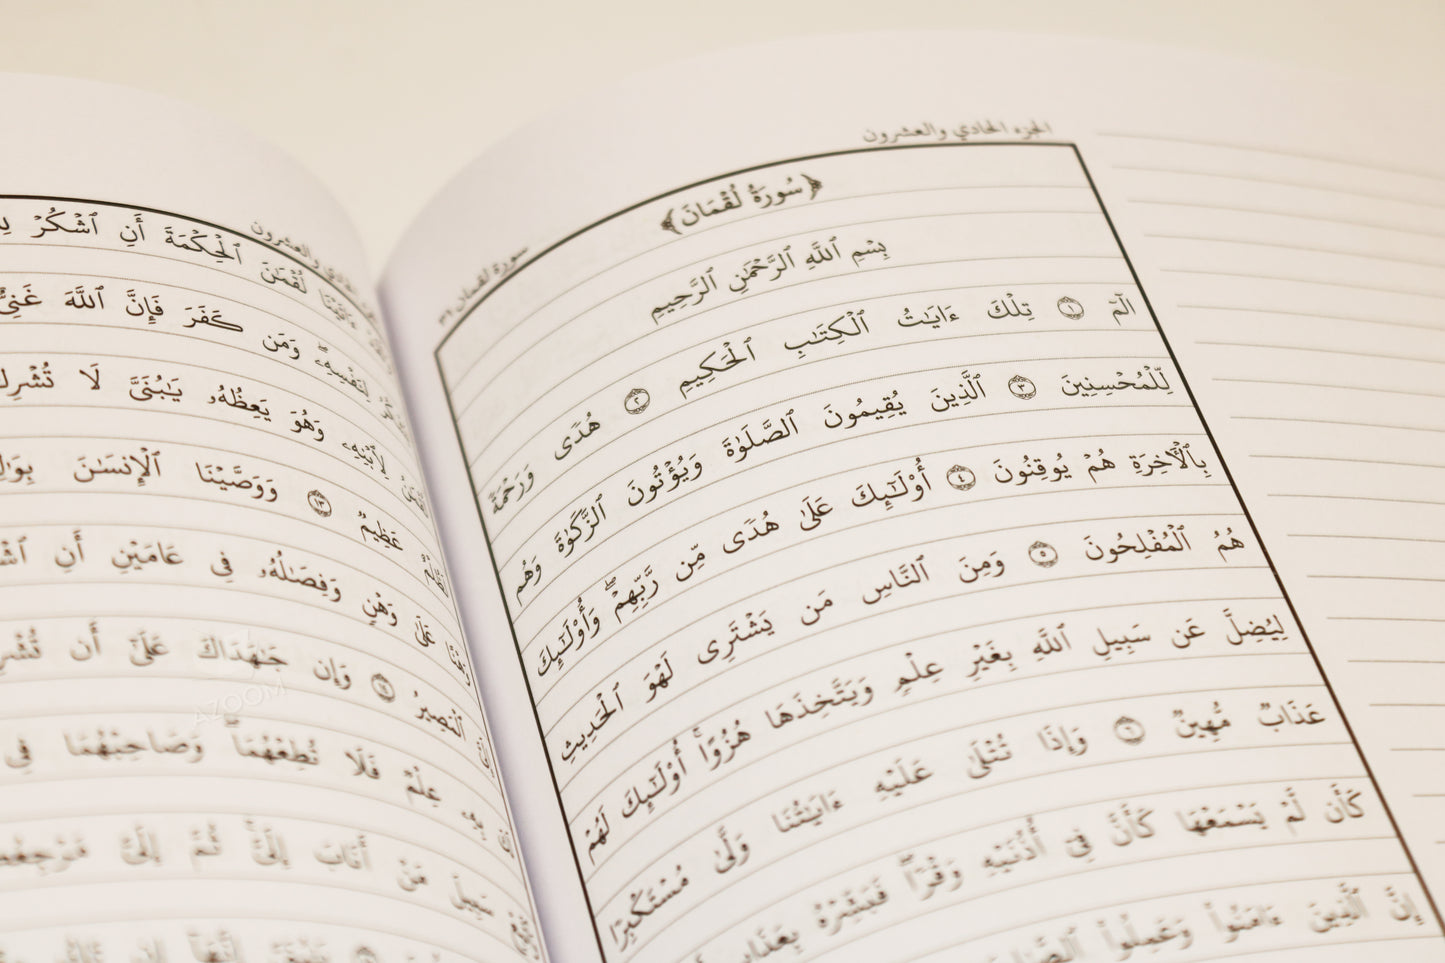 الجزء الحادي والعشرون
سورة لقمان
﴿سُورَةُ لُقْمَانَ﴾
بِسْمِ ٱللَّهِ ٱلرَّحْمَٰنِ ٱلرَّحِيمِ
الٓمٓ ١ تِلْكَ ءَايَٰتُ ٱلْكِتَٰبِ ٱلْحَكِيمِ ٢ هُدًى وَرَحْمَةً
لِّلْمُحْسِنِينَ ٣ ٱلَّذِينَ يُقِيمُونَ ٱلصَّلَوٰةَ وَيُؤْتُونَ ٱلزَّكَوٰةَ وَهُم
بِٱلْأٓخِرَةِ هُمْ يُوقِنُونَ ٤ أُو۟لَٰٓئِكَ عَلَىٰ هُدًى مِّن رَّبِّهِمْ ۖ وَأُو۟لَٰٓئِكَ
هُمُ ٱلْمُفْلِحُونَ ٥ وَمِنَ ٱلنَّاسِ مَن يَشْتَرِى لَهْوَ ٱلْحَدِيثِ
لِيُضِلَّ عَن سَبِيلِ ٱللَّهِ بِغَيْرِ عِلْمٍ وَيَتَّخِذَهَا هُزُوًا ۚ أُو۟لَٰٓئِكَ لَهُمْ
عَذَابٌ مُّهِينٌ ٦ وَإِذَا تُتْلَىٰ عَلَيْهِ ءَايَٰتُنَا وَلَّىٰ مُسْتَكْبِرًا
كَأَن لَّمْ يَسْمَعْهَا كَأَنَّ فِىٓ أُذُنَيْهِ وَقْرًا ۖ فَبَشِّرْهُ بِعَذَابٍ
إِنَّ ٱلَّذِينَ ءَامَنُوا۟ وَعَمِلُوا۟
والعشرون
ءَاتَيْنَا لُقْمَٰنَ ٱلْحِكْمَةَ أَنِ ٱشْكُرْ
لِنَفْسِهِۦ ۖ وَمَن كَفَرَ فَإِنَّ ٱللَّهَ غَنِىٌّ
لِٱبْنِهِۦ وَهُوَ يَعِظُهُۥ يَٰبُنَىَّ لَا تُشْرِكْ
لَظُلْمٌ عَظِيمٌ ١٣ وَوَصَّيْنَا ٱلْإِنسَٰنَ
وَهْنًا عَلَىٰ وَهْنٍ وَفِصَٰلُهُۥ فِى عَامَيْنِ أَنِ
إِلَىَّ ٱلْمَصِيرُ ١٤ وَإِن جَٰهَدَاكَ عَلَىٰٓ أَن
بِهِۦ عِلْمٌ فَلَا تُطِعْهُمَا ۖ وَصَاحِبْهُمَا فِى
سَبِيلَ مَنْ أَنَابَ إِلَىَّ ۚ ثُمَّ إِلَىَّ
AZOOM